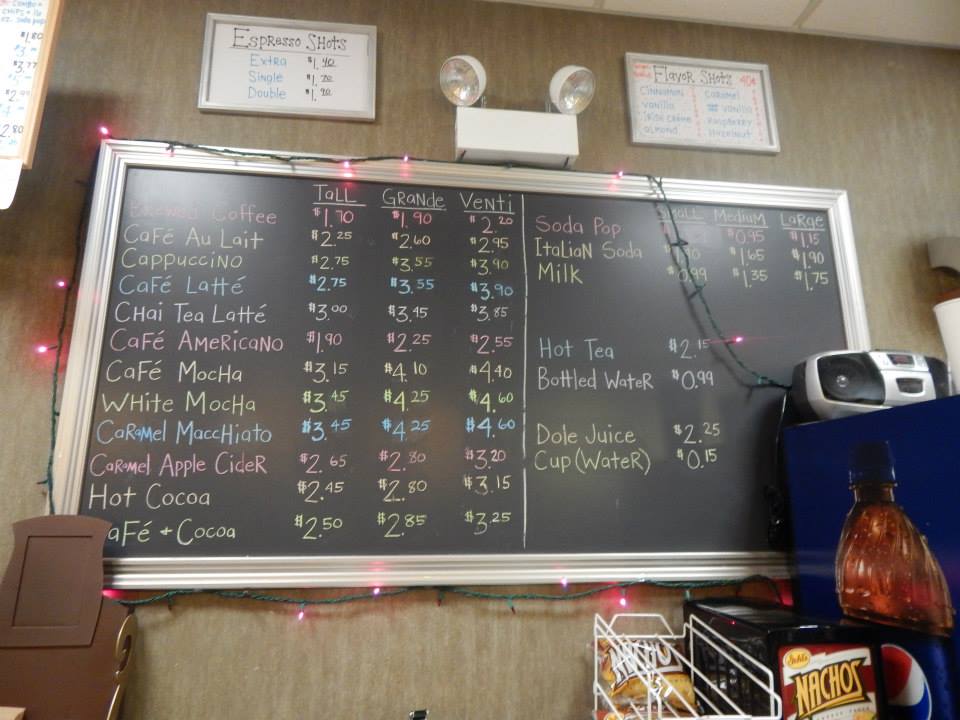 $1.80
2.80
Espresso Shots
Extra $1.40
Single $1.70
Double $1.90
Flavor Shots 40¢
Cinnamon Caramel
Vanilla Vanilla
Irish Creme Raspberry
Almond Hazelnut
Tall Grande Venti
Brewed Coffee $1.70 $1.90 $2.20
Café Au Lait $2.25 $2.60 $2.95
Cappuccino $2.75 $3.55 $3.90
Café Latté $2.75 $3.55 $3.90
Chai Tea Latté $3.00 $3.45 $3.85
Café Americano $1.90 $2.25 $2.55
Café Mocha $3.15 $4.10 $4.40
White Mocha $3.45 $4.25 $4.60
Caramel Macchiato $3.45 $4.25 $4.60
Caramel Apple Cider $2.65 $2.80 $3.20
Hot Cocoa $2.45 $2.80 $3.15
afé + Cocoa $2.50 $2.85 $3.25
Small Medium Large
Soda Pop $0.95 $1.15
Italian Soda $1.65 $1.90
Milk $0.99 $1.35 $1.75
Hot Tea $2.15
Bottled Water $0.99
Dole Juice $2.25
Cup (Water) $0.15
NACHOS
NACHOS